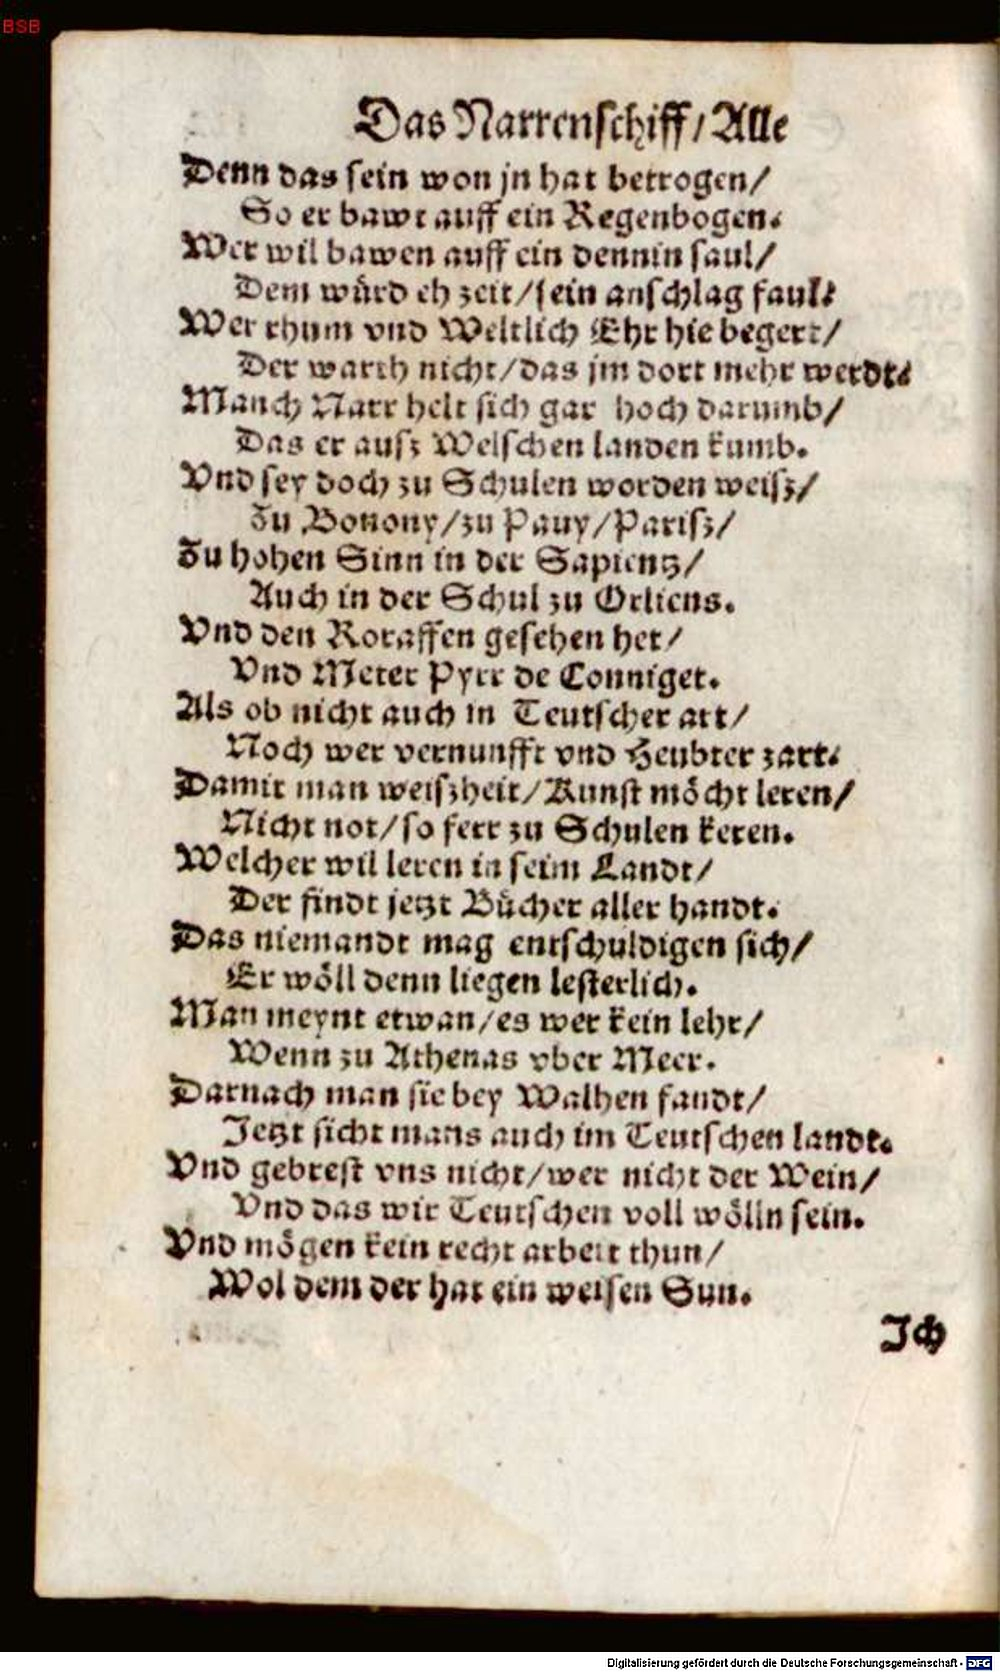 BSB
Das Narrenschiff / Alle
Denn das sein won jn hat betrogen /
So er bawt auff ein Regenbogen.
Wer wil bawen auff ein dennin saul /
Dem würd eh zeit / sein anschlag faul.
Wer rhum vnd Weltlich Ehr hie begert /
Der warth nicht / das jm dort mehr werdt.
Manch Narr helt sich gar hoch darumb /
Das er ausz Welschen landen kumb.
Vnd sey doch zu Schulen worden weisz /
Zu Bonony / zu Pauy / Parisz /
Zu hohen Sinn in der Sapientz /
Auch in der Schul zu Orliens.
Vnd den Roraffen gesehen het /
Vnd Meter Pyrr de Conniget.
Als ob nicht auch in Teutscher art /
Noch wer vernunfft vnd Heubter zart.
Damit man weiszheit / Kunst möcht leren /
Nicht not / so ferr zu Schulen keren.
Welcher wil leren in seim Landt /
Der findt jetzt Bücher aller handt.
Das niemandt mag entschuldigen sich /
Er wöll denn liegen lesterlich.
Man meynt etwan / es wer kein lehr /
Wenn zu Athenas vber Meer.
Darnach man sie bey Walhen fandt /
Jetzt sicht mans auch im Teutschen landt.
Vnd gebrest vns nicht / wer nicht der Wein /
Vnd das wir Teutschen voll wölln sein.
Vnd mögen kein recht arbeit thun /
Wol dem der hat ein weisen Sun.
Ich
Digitalisierung gefördert durch die Deutsche Forschungsgemeinschaft - DFG